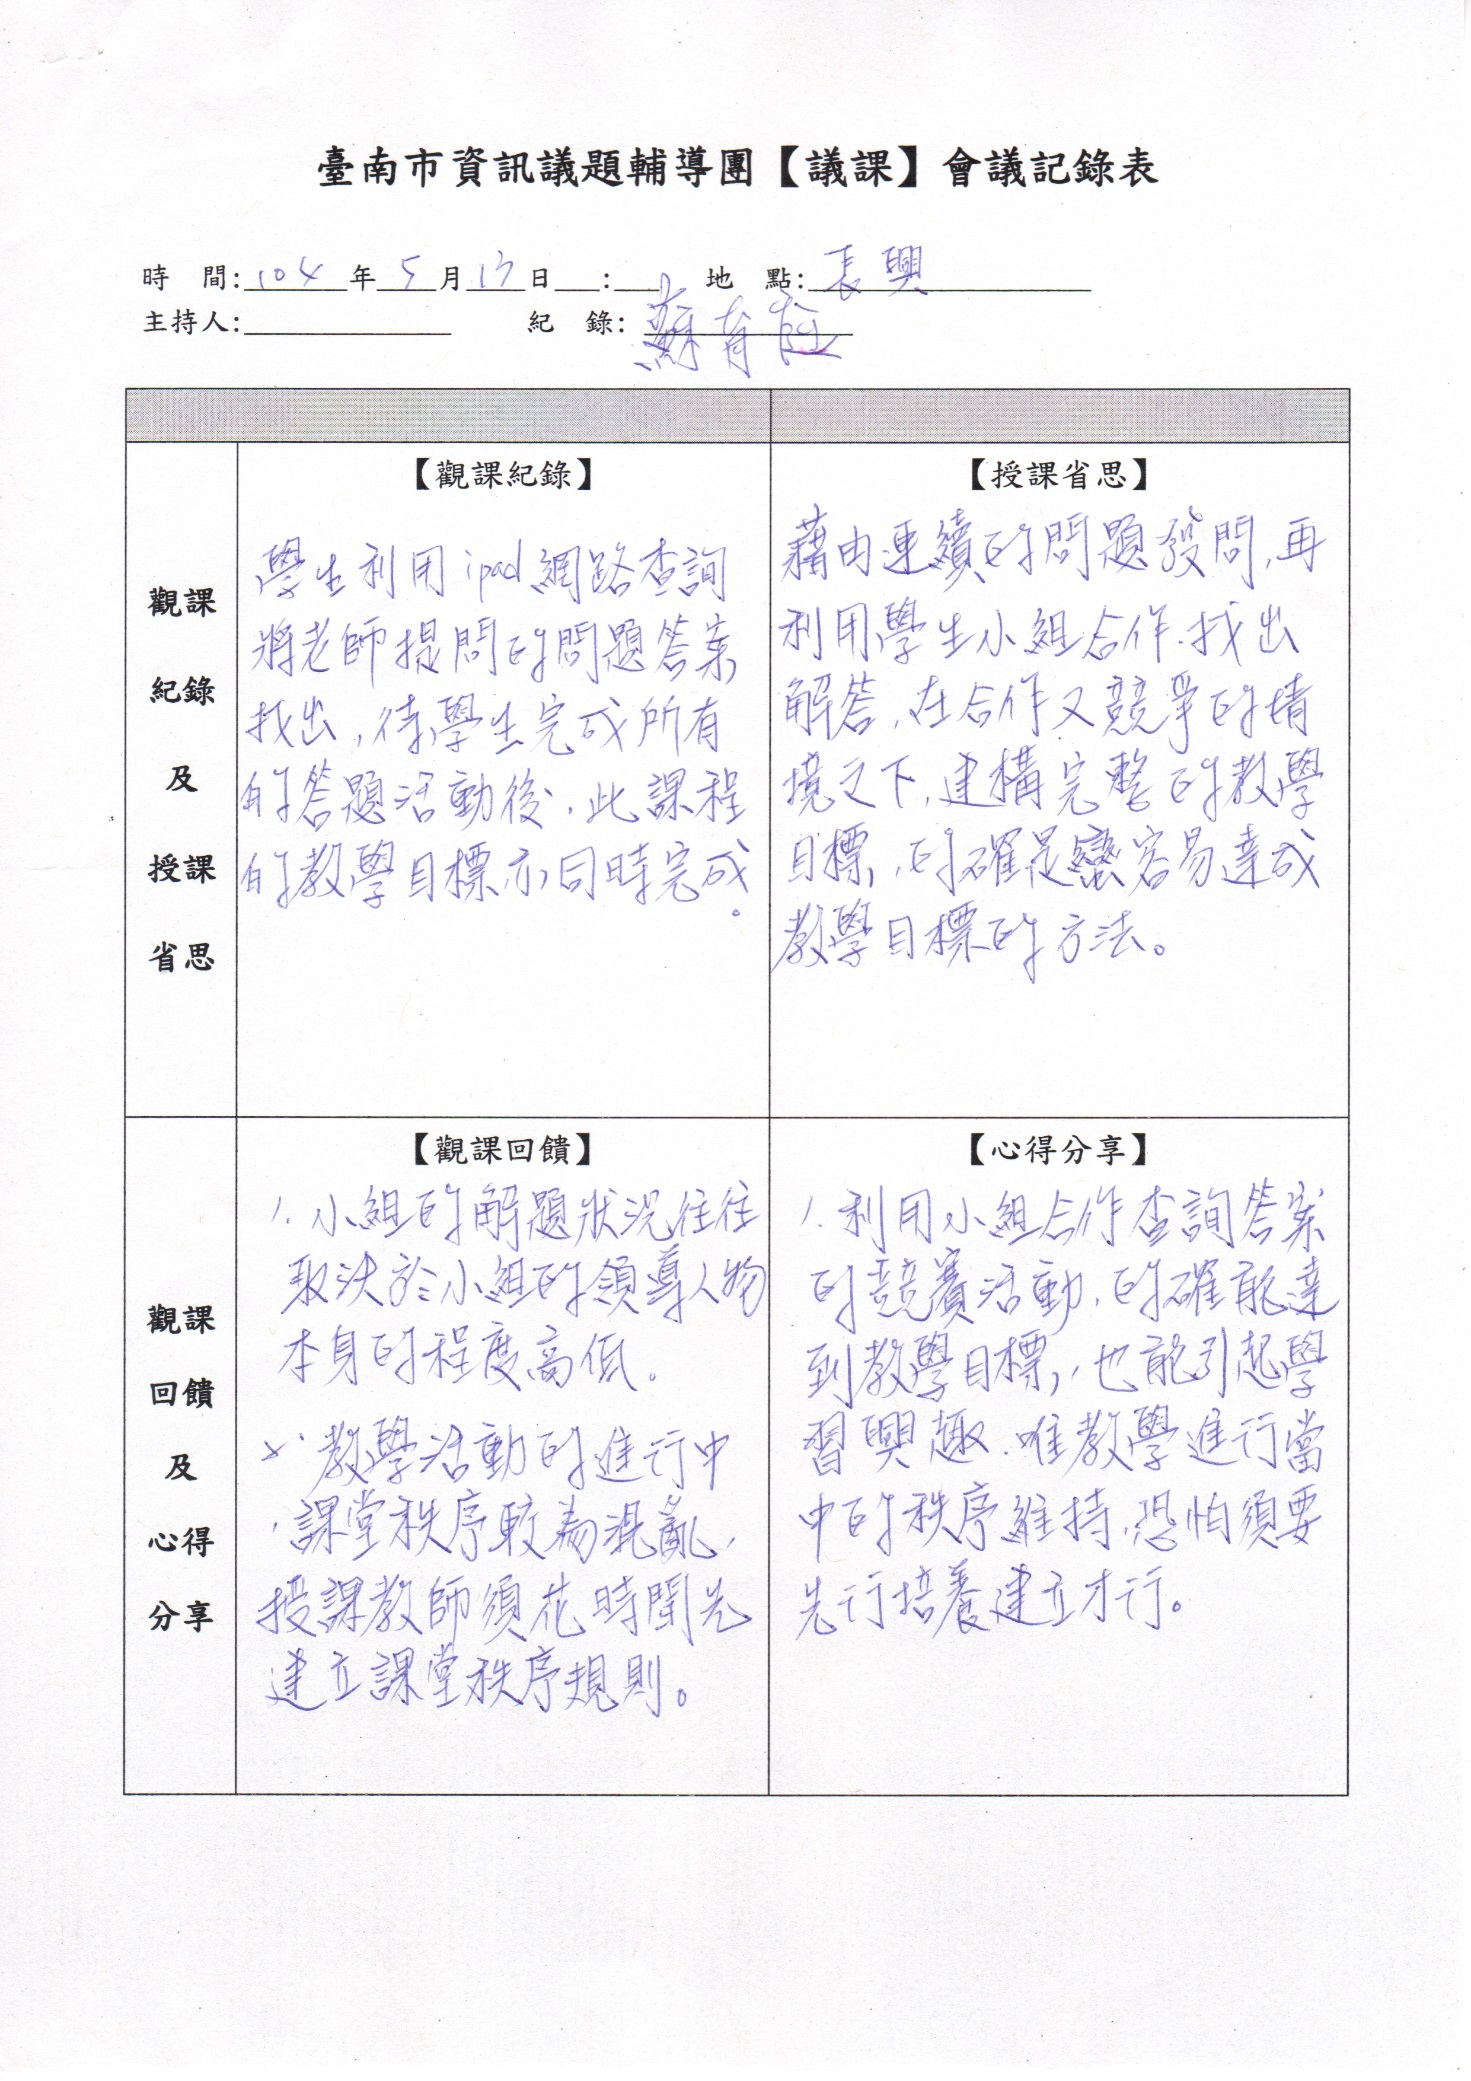 臺南市資訊議題輔導團【議課】會議記錄表
時 間：104年5月13日 ： 地 點：長興
主持人： 紀 錄：蘇育
觀課
紀錄
及
授課
省思
【觀課紀錄】
學生利用ipad網路查詢
將老師提問的問題答案
找出，待學生完成所有
的答題活動後，此課程
的教學目標亦同時完成
。
【授課省思】
藉由連續的問題發問，再
利用學生小組合作．找出
解答，在合作又競爭的情
境之下，建構完整的教學
目標，的確是蠻容易達成
教學目標的方法。
觀課
回饋
及
心得
分享
【觀課回饋】
1. 小組的解題狀況往往
取決於小組的領導人物
本身的程度高低。
2. 教學活動的進行中
，課堂秩序較為混亂，
授課教師須花時間先
建立課堂秩序規則。
【心得分享】
1. 利用小組合作查詢答案
的競賽活動，的確能達
到教學目標，也能引起學
習興趣．唯教學進行當
中的秩序維持，恐怕須要
先行培養建立才行。